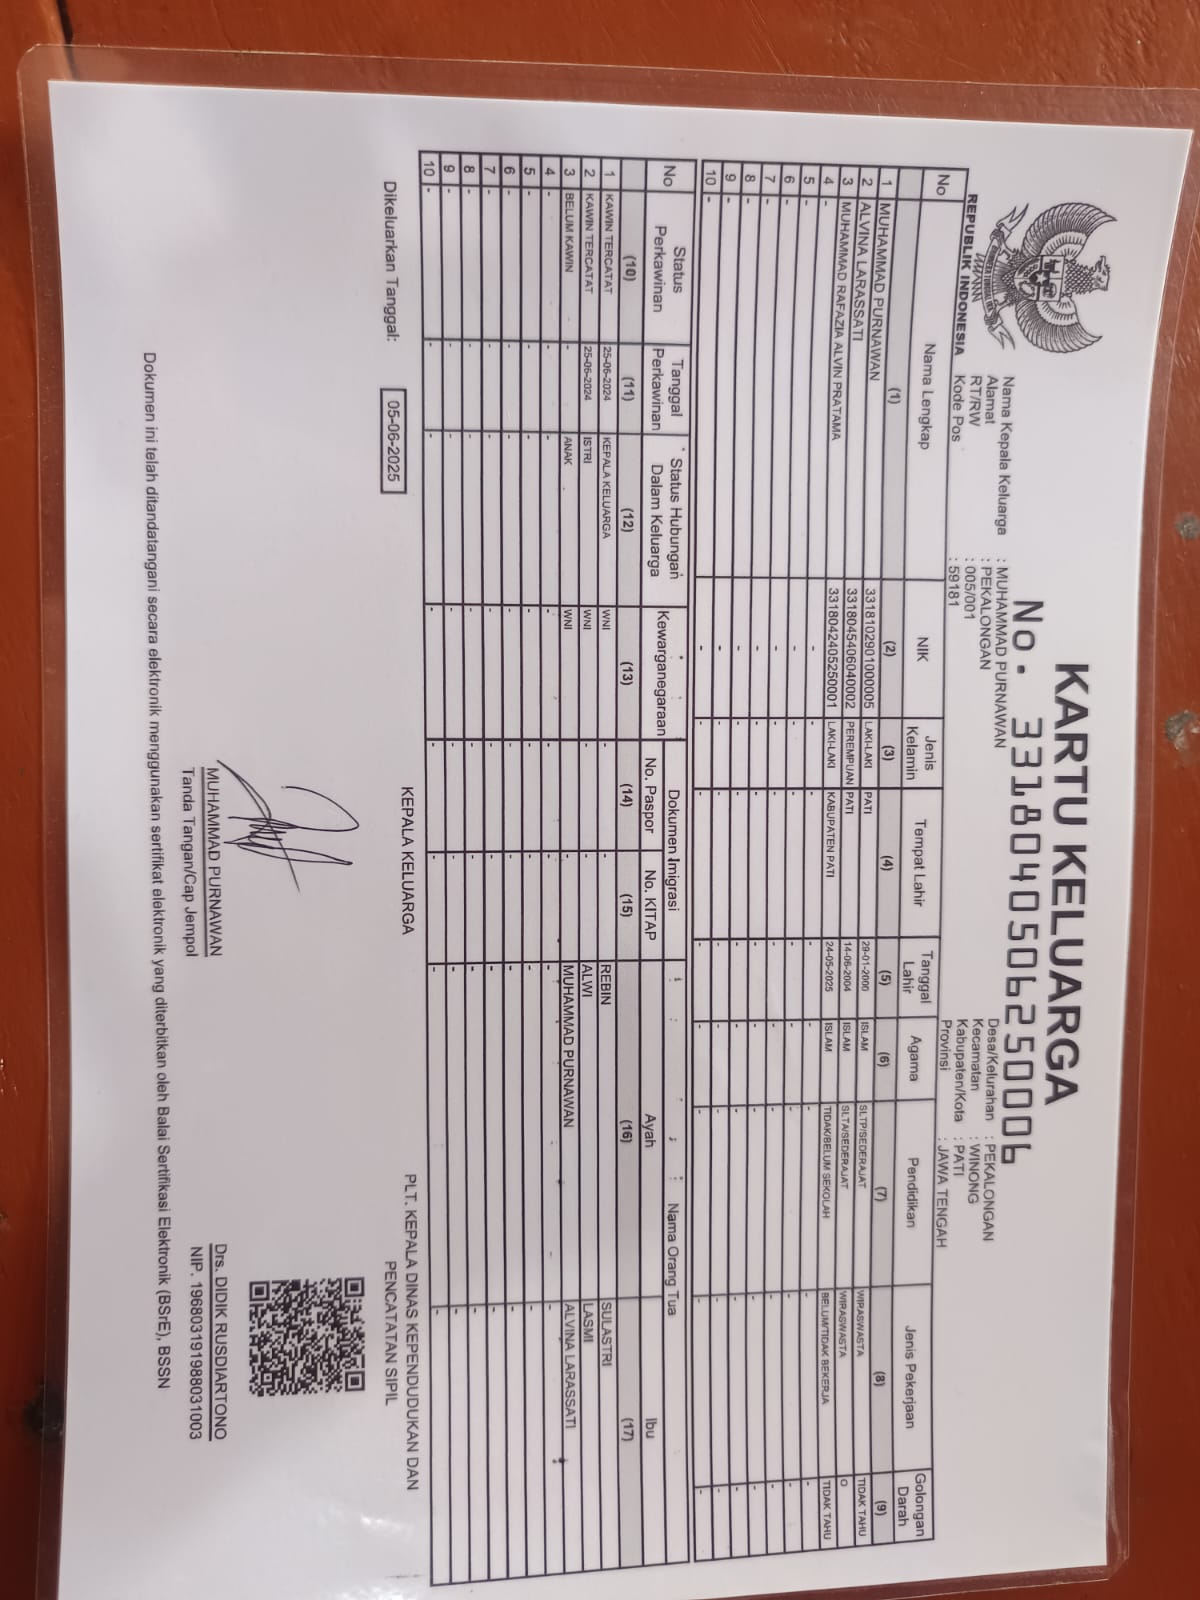 KARTU KELUARGA
No. 3318040506250006
REPUBLIK INDONESIA
Nama Kepala Keluarga : MUHAMMAD PURNAWAN
Alamat : PEKALONGAN
RT/RW : 005/001
Kode Pos : 59181
Desa/Kelurahan : PEKALONGAN
Kecamatan : WINONG
Kabupaten/Kota : PATI
Provinsi : JAWA TENGAH
No Nama Lengkap NIK Jenis Kelamin Tempat Lahir Tanggal Lahir Agama Pendidikan Jenis Pekerjaan Golongan Darah
(1) (2) (3) (4) (5) (6) (7) (8) (9)
1 MUHAMMAD PURNAWAN 3318102901000005 LAKI-LAKI PATI 29-01-2000 ISLAM SLTP/SEDERAJAT WIRASWASTA TIDAK TAHU
2 ALVINA LARASSATI 3318045406040002 PEREMPUAN PATI 14-06-2004 ISLAM SLTA/SEDERAJAT WIRASWASTA O
3 MUHAMMAD RAFAZIA ALVIN PRATAMA 3318042405250001 LAKI-LAKI KABUPATEN PATI 24-05-2025 ISLAM TIDAK/BELUM SEKOLAH BELUM/TIDAK BEKERJA TIDAK TAHU
4 - - - - - - - - -
5 - - - - - - - - -
6 - - - - - - - - -
7 - - - - - - - - -
8 - - - - - - - - -
9 - - - - - - - - -
10 - - - - - - - - -
No Status Perkawinan Tanggal Perkawinan Status Hubungan Dalam Keluarga Kewarganegaraan Dokumen Imigrasi Nama Orang Tua
No. Paspor No. KITAP Ayah Ibu
(10) (11) (12) (13) (14) (15) (16) (17)
1 KAWIN TERCATAT 25-06-2024 KEPALA KELUARGA WNI - - REBIN SULASTRI
2 KAWIN TERCATAT 25-06-2024 ISTRI WNI - - ALWI LASMI
3 BELUM KAWIN - ANAK WNI - - MUHAMMAD PURNAWAN ALVINA LARASSATI
4 - - - - - - - -
5 - - - - - - - -
6 - - - - - - - -
7 - - - - - - - -
8 - - - - - - - -
9 - - - - - - - -
10 - - - - - - - -
Dikeluarkan Tanggal: 05-06-2025
KEPALA KELUARGA
MUHAMMAD PURNAWAN
Tanda Tangan/Cap Jempol
PLT. KEPALA DINAS KEPENDUDUKAN DAN
PENCATATAN SIPIL
Drs. DIDIK RUSDIARTONO
NIP. 196803191988031003
Dokumen ini telah ditandatangani secara elektronik menggunakan sertifikat elektronik yang diterbitkan oleh Balai Sertifikasi Elektronik (BSrE), BSSN